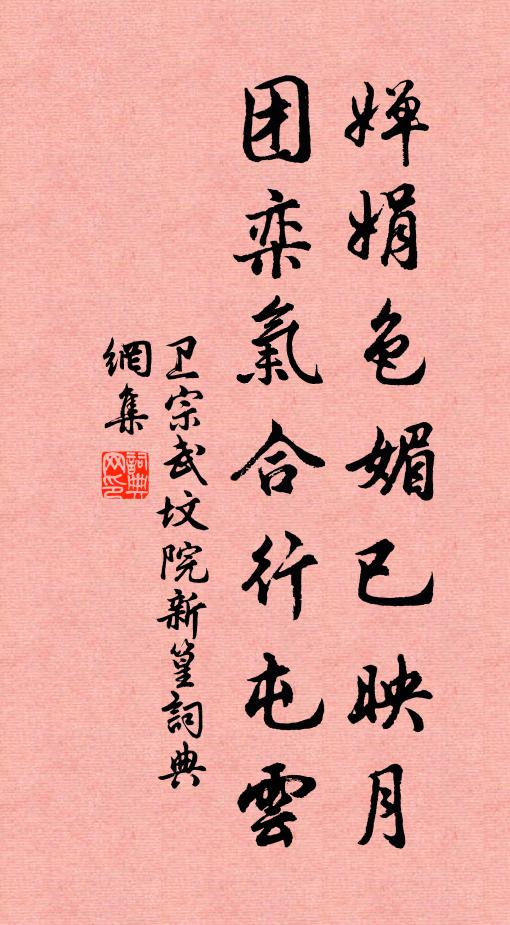 婵娟色媚已映月
团奕氣合行屯雲
卫宗武坟院新篁詞典
網集
詞典
网印